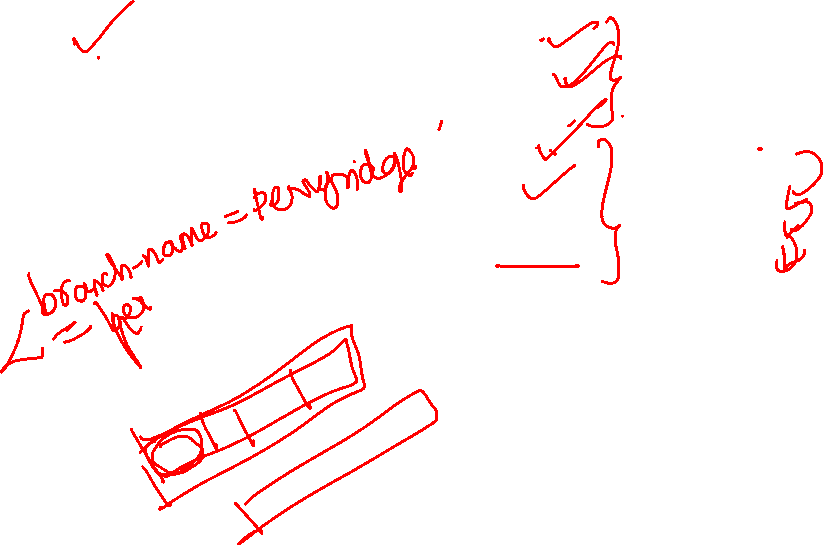 branch-name = perryridge '
= per